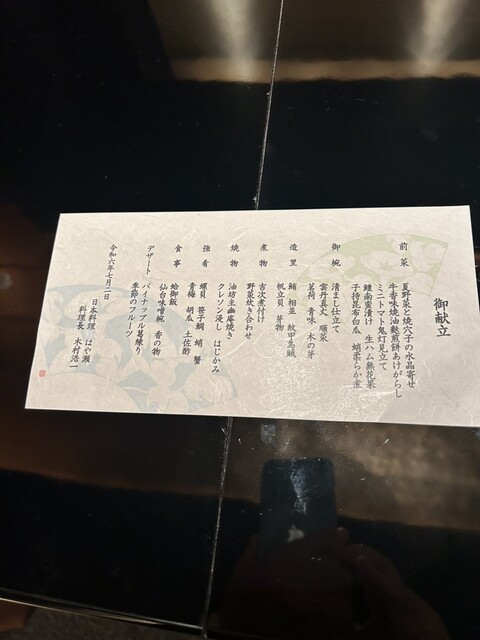 御献立
前菜 夏野菜と焼穴子の水晶寄せ
牛香味焼油麩煎餅あけがらし
ミニトマト鬼灯見立て
鱧南蛮漬け 生ハム無花果
子持昆布白瓜 蛸柔らか煮
御椀 清まし仕立て
雲丹真丈 順菜
茗荷 青味 木の芽
造里 鮪 相並 紋甲烏賊
帆立貝 芽物
煮物 吉次煮付け
野菜炊き合わせ
焼物 油坊主幽庵焼き
クレソン浸し はじかみ
強肴 螺貝 笹子鯛 蛸 蟹
青梅 胡瓜 土佐酢
食事 蛤御飯
仙台味噌椀 香の物
デザート パイナップル葛練り
季節のフルーツ
令和六年七月二日
日本料理 はや瀬
料理長 木村浩一